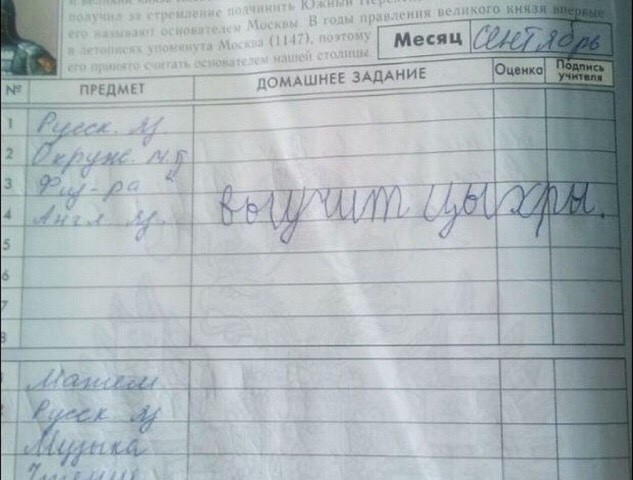 получил за стремление подчинить Южный
его называют основателем Москвы. В годы правления великого князя впервые
в летописях упомянута Москва (1147), поэтому
его принято считать основателем нашей столицы.
Месяц сентябрь
№ ПРЕДМЕТ ДОМАШНЕЕ ЗАДАНИЕ Оценка Подпись учителя
1 Русск. яз.
2 Окруж. м.
3 Физ-ра
4 Англ. яз. выучит цыхры.
5
6
7
8
Матем
Русск яз
Музыка
Чтение